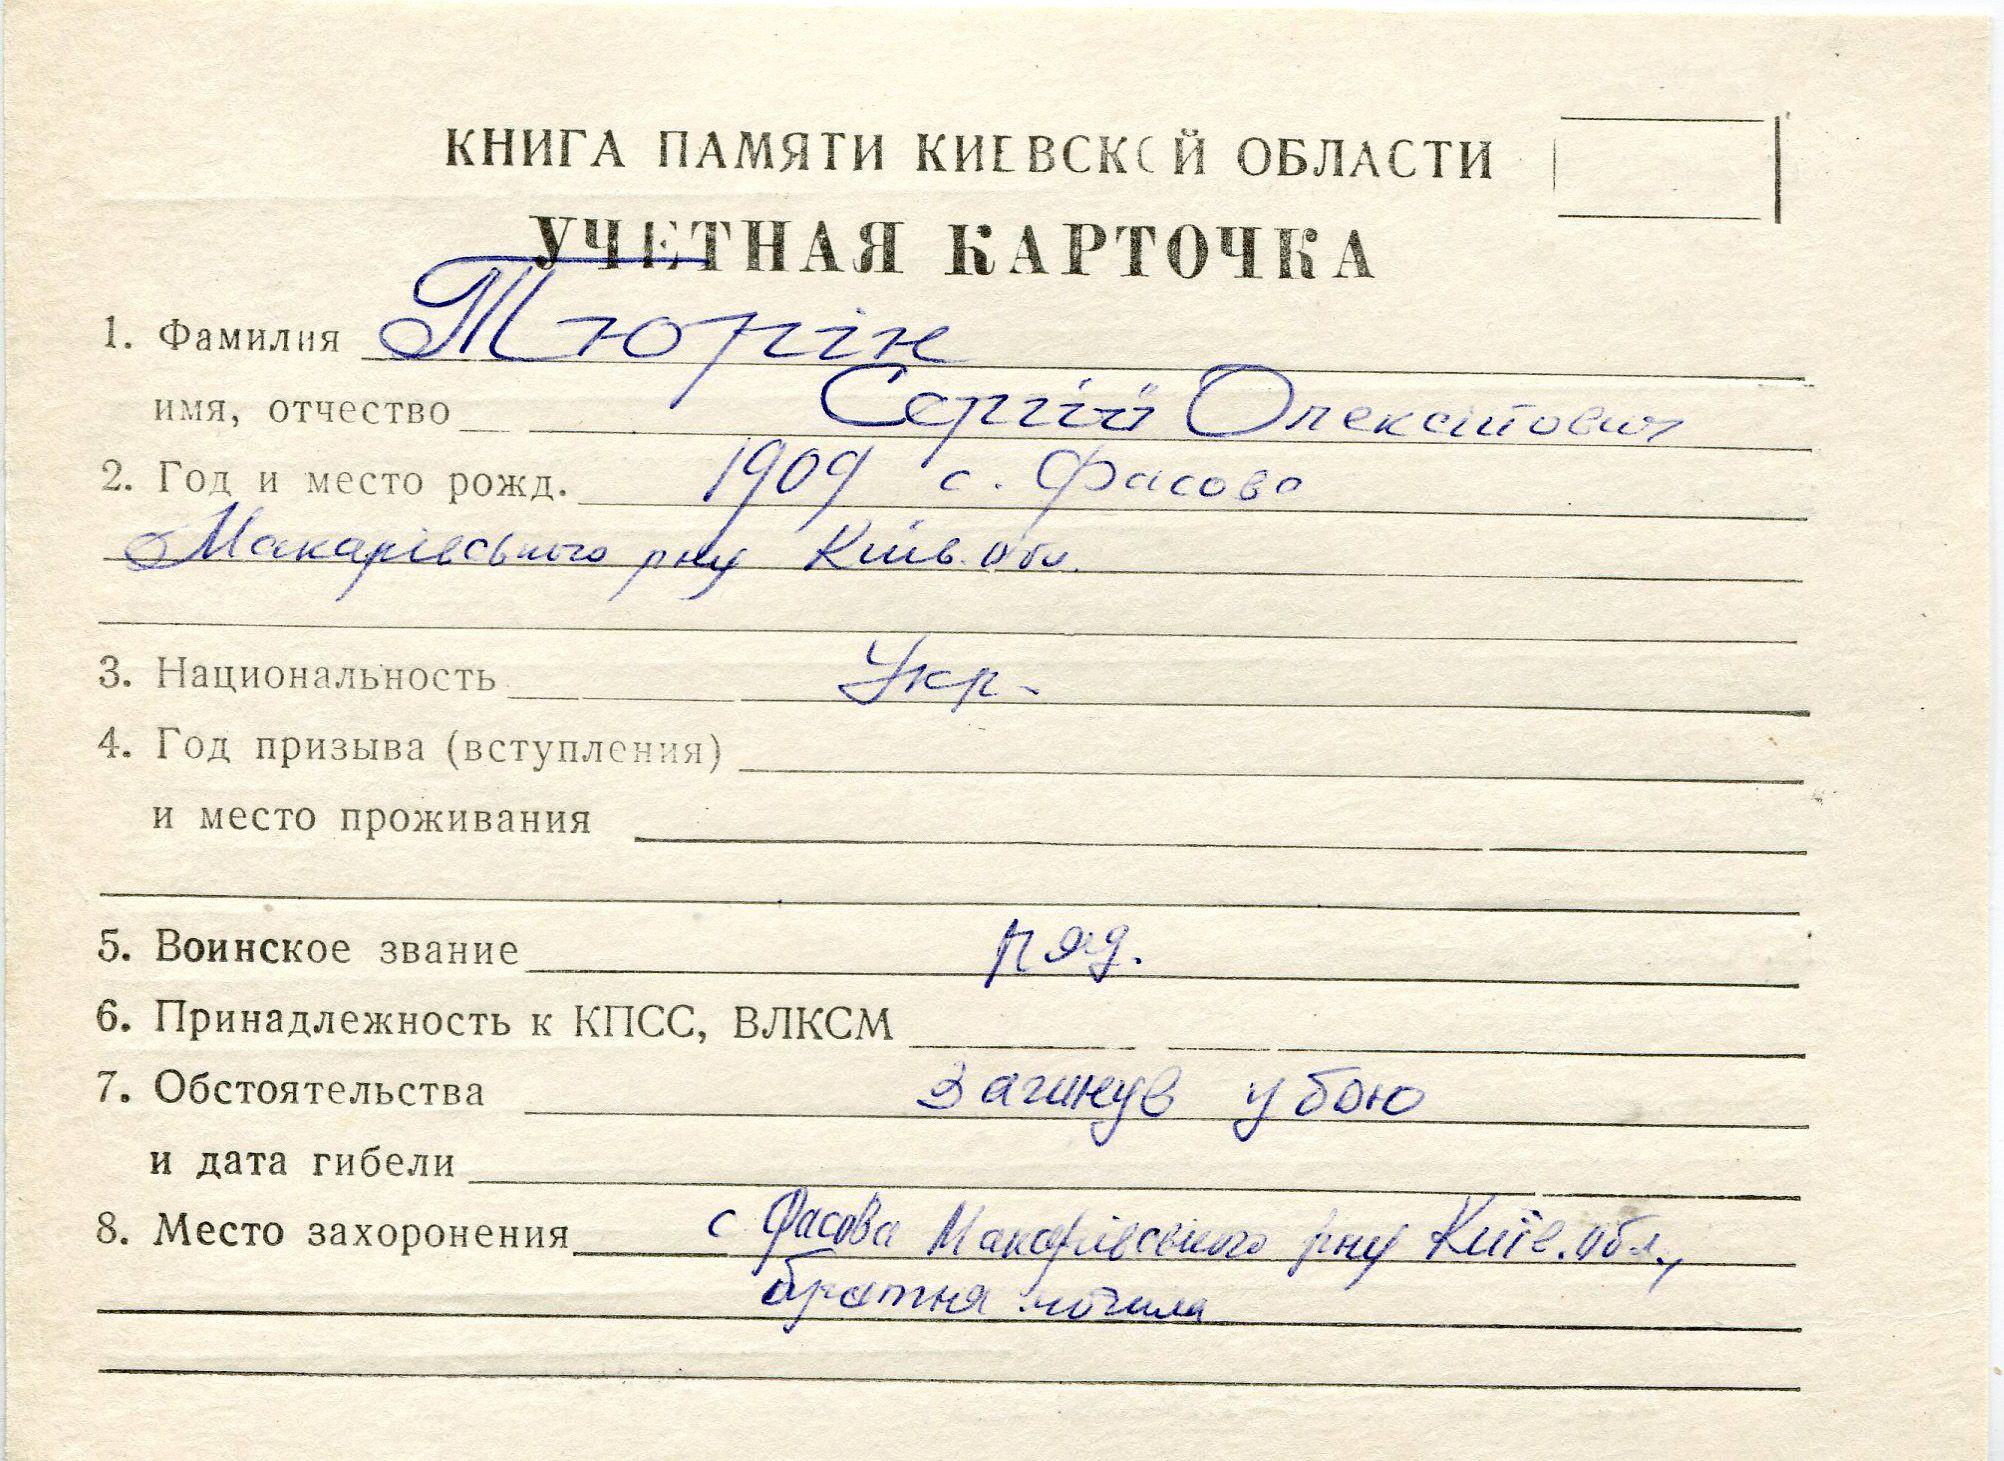 КНИГА ПАМЯТИ КИЕВСКОЙ ОБЛАСТИ
УЧЕТНАЯ КАРТОЧКА
1. Фамилия Тюрін
имя, отчество Сергій Олексійович
2. Год и место рожд. 1909 с. Фасова
Макарівського рну Київ. обл.
3. Национальность Укр.
4. Год призыва (вступления)
и место проживания
5. Воинское звание ряд.
6. Принадлежность к КПСС, ВЛКСМ
7. Обстоятельства загинув у бою
и дата гибели
8. Место захоронения с Фасова Макарівського рну Київ. обл.,
братня могила